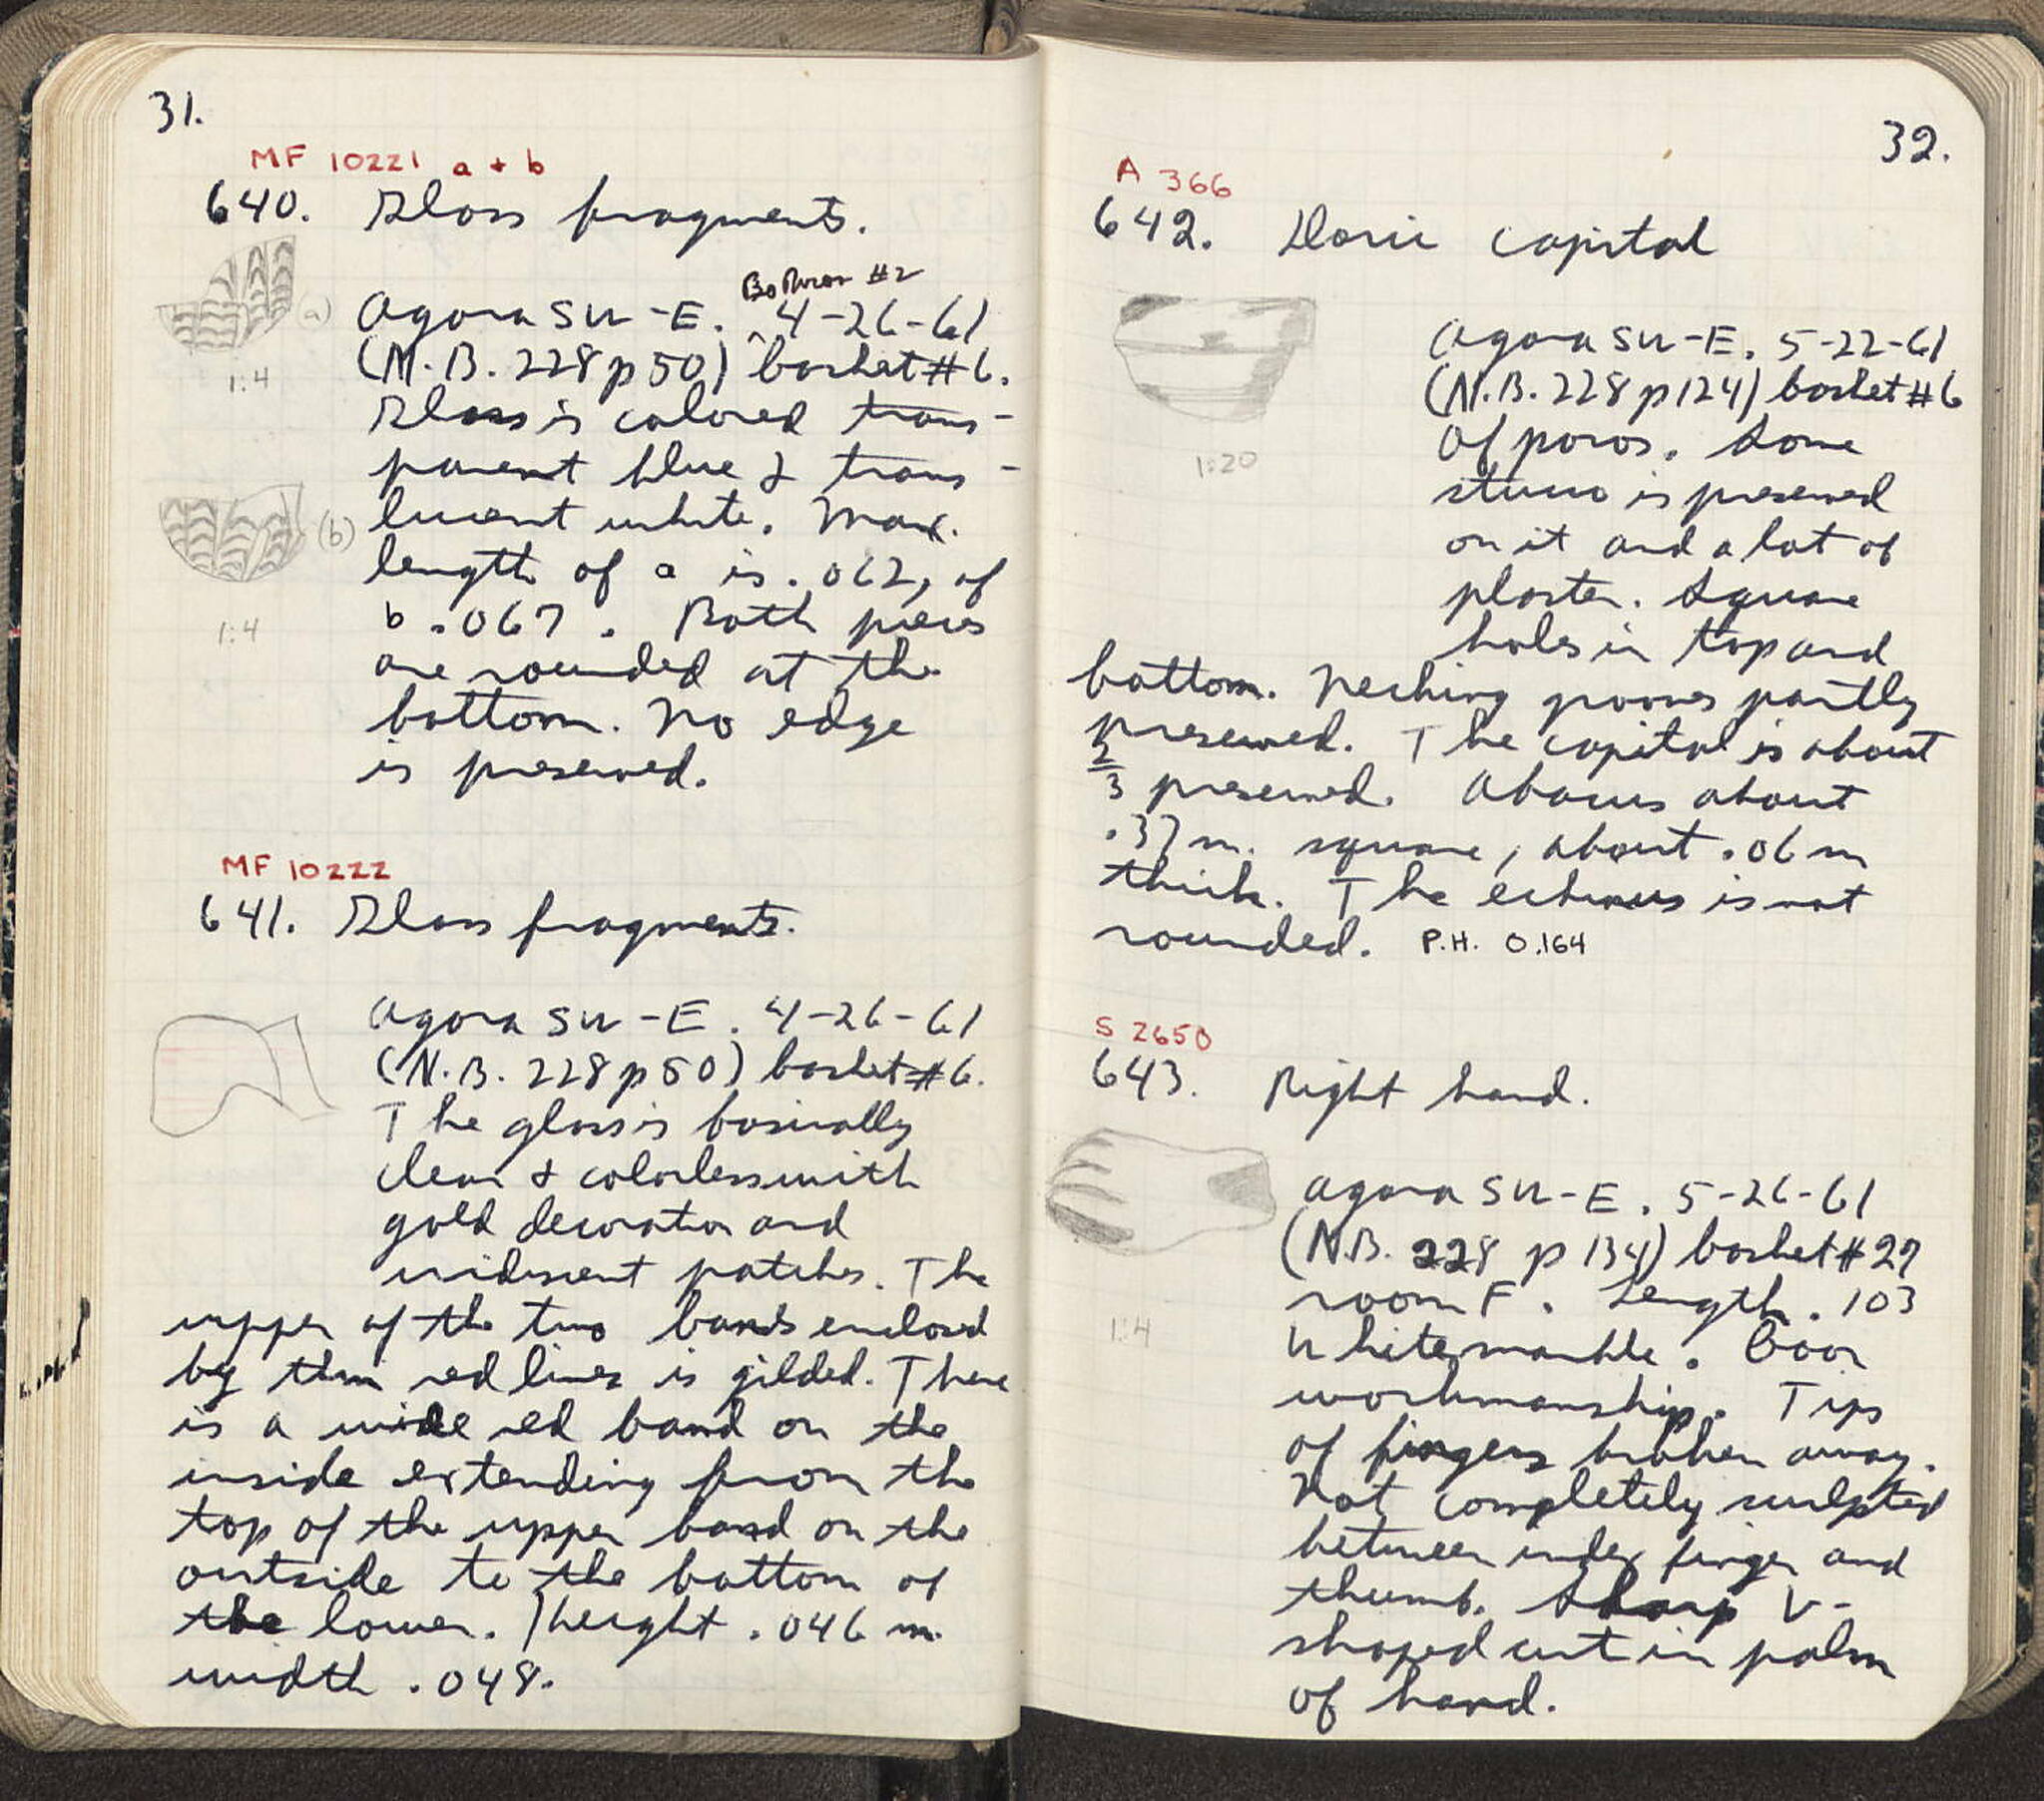 31.
MF 10221 a + b
640. Glass fragments.
Bothros #2
Agora SW-E. 4-26-61
(a)
(N.B. 228 p 50) basket #6.
1:4
Glass is colored trans-
parent blue & trans-
lucent white. Max.
(b)
length of a is .062, of
b .067. Both pieces
1:4
are rounded at the
bottom. No edge
is preserved.
MF 10222
641. Glass fragments.
Agora SW-E. 4-26-61
(N.B. 228 p 50) basket #6.
The glass is basically
clear & colorless with
gold decoration and
iridescent patches. The
upper of the two bands enclosed
by thin red lines is gilded. There
is a wide red band on the
inside extending from the
top of the upper band on the
outside to the bottom of
the lower. Height .046 m.
width .048.
32.
A 366
642. Doric capital
Agora SW-E. 5-22-61
(N.B. 228 p 124) basket #6
Of poros. Some
1:20
stucco is preserved
on it and a lot of
plaster. Square
holes in top and
bottom. Necking grooves partly
preserved. The capital is about
2/3 preserved. Abacus about
.37 m. square, about .06 m
thick. The echinus is not
rounded. P.H. 0.164
S 2650
643. Right hand.
Agora SW-E. 5-26-61
(N.B. 228 p 134) basket #29
room F. Length .103
1:4
White marble. Poor
workmanship. Tips
of fingers broken away.
Not completely sculpted
between index finger and
thumb. Sharp V-
shaped cut in palm
of hand.